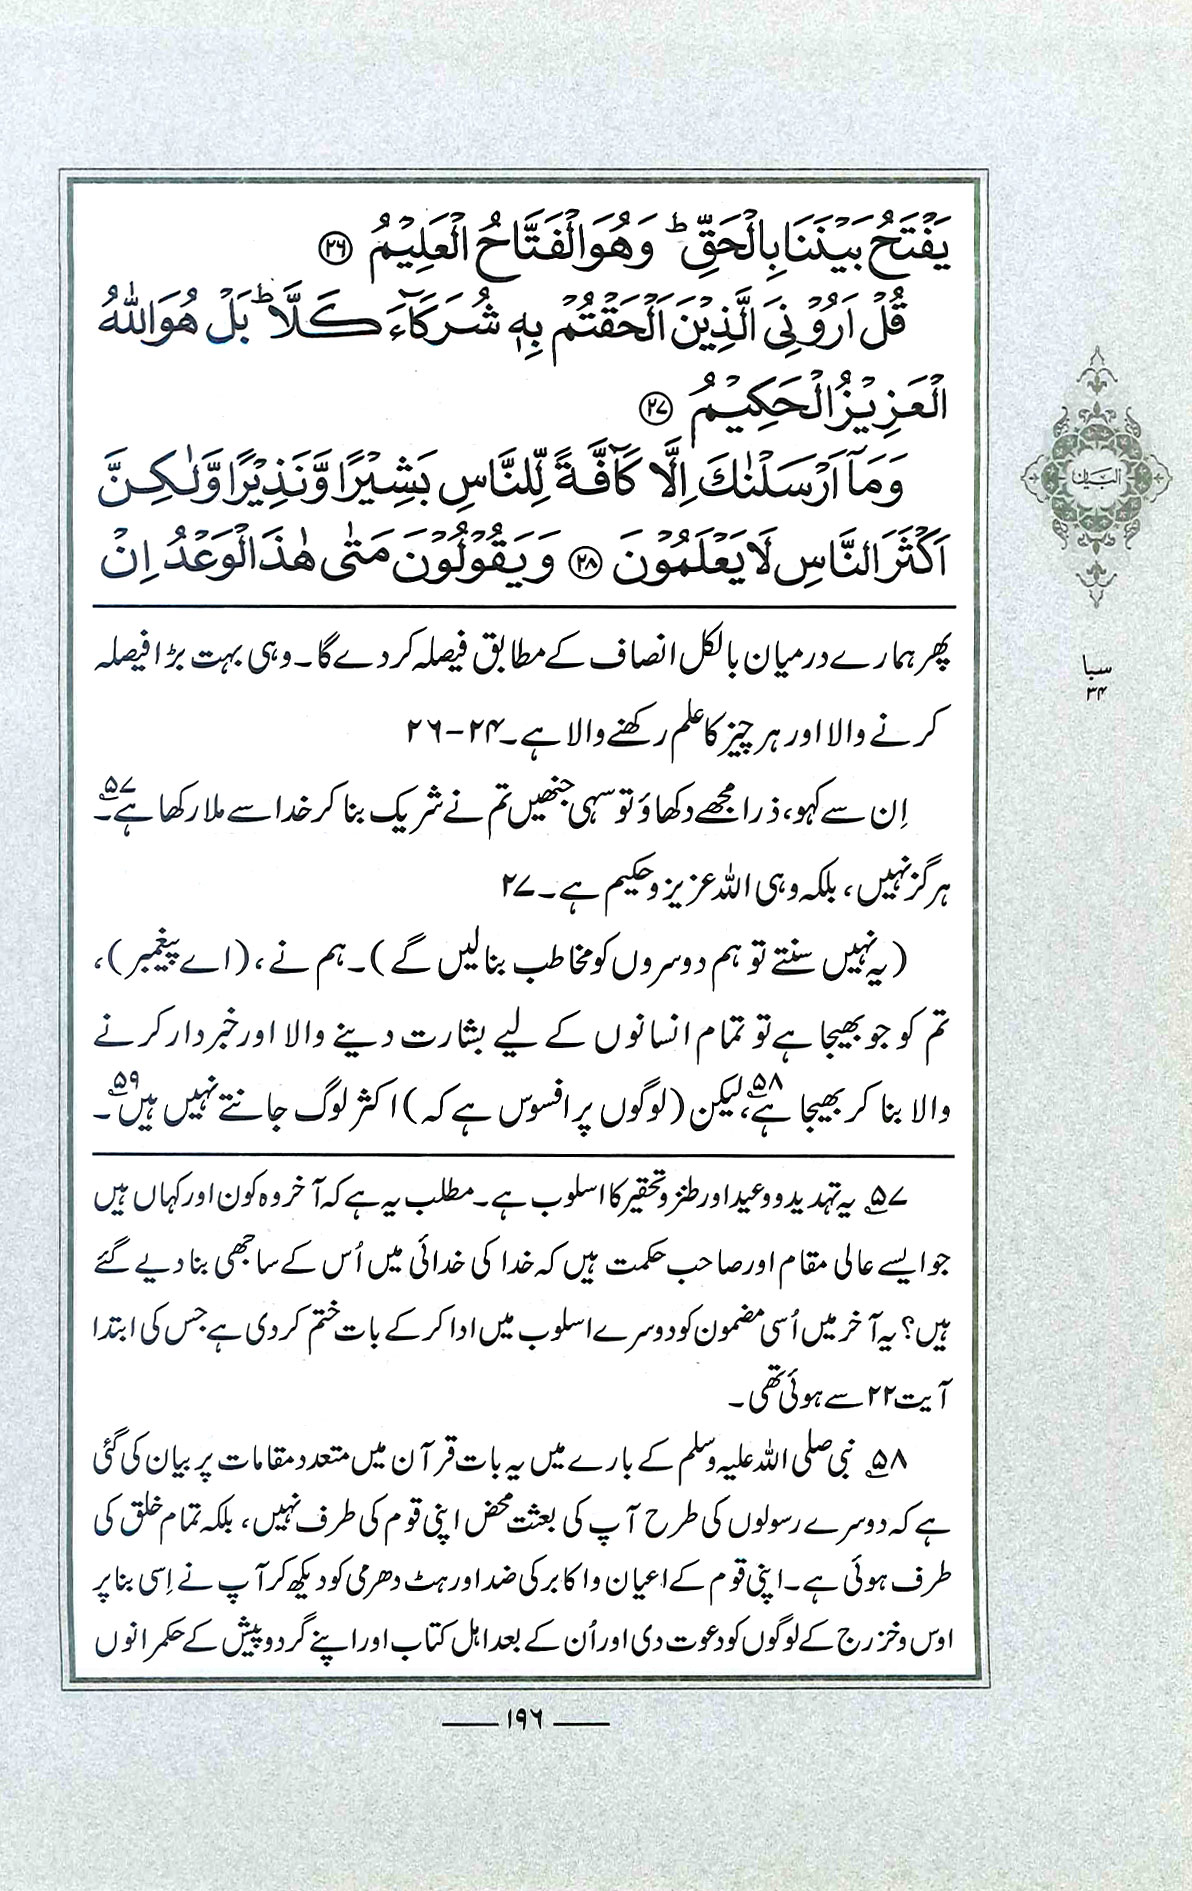 يَفْتَحُ بَيْنَنَا بِالْحَقِّ ؕ وَهُوَ الْفَتَّاحُ الْعَلِيْمُ ﴿۲۶﴾
قُلْ اَرُوْنِیَ الَّذِيْنَ اَلْحَقْتُمْ بِهٖ شُرَكَآءَ كَلَّا ؕ بَلْ هُوَ اللّٰهُ
الْعَزِيْزُ الْحَكِيْمُ ﴿۲۷﴾
وَمَاۤ اَرْسَلْنٰكَ اِلَّا كَآفَّةً لِّلنَّاسِ بَشِيْرًا وَّنَذِيْرًا وَّلٰكِنَّ
اَكْثَرَ النَّاسِ لَا يَعْلَمُوْنَ ﴿۲۸﴾ وَيَقُوْلُوْنَ مَتٰى هٰذَا الْوَعْدُ اِنْ
پھر ہمارے درمیان بالکل انصاف کے مطابق فیصلہ کر دے گا۔ وہی بہت بڑا فیصلہ
کرنے والا اور ہر چیز کا علم رکھنے والا ہے۔ ۲۴-۲۶
اِن سے کہو، ذرا مجھے دکھاؤ تو سہی جنھیں تم نے شریک بنا کر خدا سے ملا رکھا ہے۵۷۔
ہرگز نہیں، بلکہ وہی اللہ عزیز و حکیم ہے۔ ۲۷
(یہ نہیں سنتے تو ہم دوسروں کو مخاطب بنا لیں گے)۔ ہم نے، (اے پیغمبر)،
تم کو جو بھیجا ہے تو تمام انسانوں کے لیے بشارت دینے والا اور خبردار کرنے
والا بنا کر بھیجا ہے۵۸، لیکن (لوگوں پر افسوس ہے کہ) اکثر لوگ جانتے نہیں ہیں۵۹۔
۵۷ یہ تہدید و وعید اور طنز و تحقیر کا اسلوب ہے۔ مطلب یہ ہے کہ آخر وہ کون اور کہاں ہیں
جو ایسے عالی مقام اور صاحب حکمت ہیں کہ خدا کی خدائی میں اُس کے ساجھی بنا دیے گئے
ہیں؟ یہ آخر میں اُسی مضمون کو دوسرے اسلوب میں ادا کر کے بات ختم کر دی ہے جس کی ابتدا
آیت ۲۲ سے ہوئی تھی۔
۵۸ نبی صلی اللہ علیہ وسلم کے بارے میں یہ بات قرآن میں متعدد مقامات پر بیان کی گئی
ہے کہ دوسرے رسولوں کی طرح آپ کی بعثت محض اپنی قوم کی طرف نہیں، بلکہ تمام خلق کی
طرف ہوئی ہے۔ اپنی قوم کے اعیان و اکابر کی ضد اور ہٹ دھرمی کو دیکھ کر آپ نے اِسی بنا پر
اوس و خزرج کے لوگوں کو دعوت دی اور اُن کے بعد اہل کتاب اور اپنے گرد و پیش کے حکمرانوں
۱۹۶
البیان
سبا
۳۴